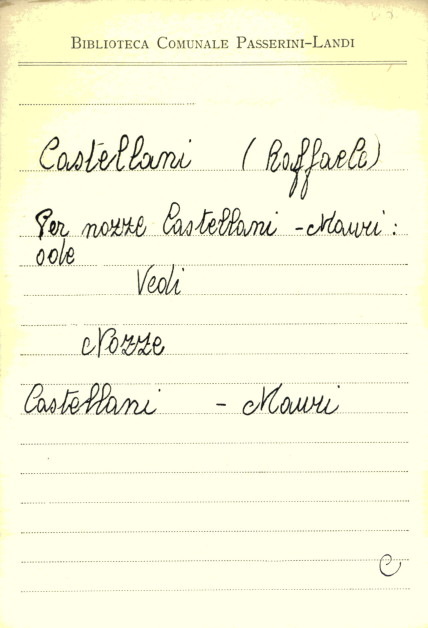 BIBLIOTECA COMUNALE PASSERINI-LANDI
Castellani (Raffaele)
Per nozze Castellani - Mauri:
ode
Vedi
Nozze
Castellani - Mauri
C